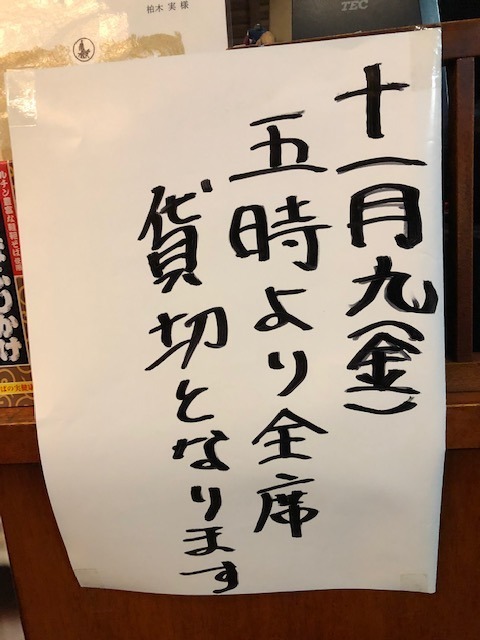 柏木 実 様
TEC
十一月九(金)
五時より全席
貸切となります
ふりかけ